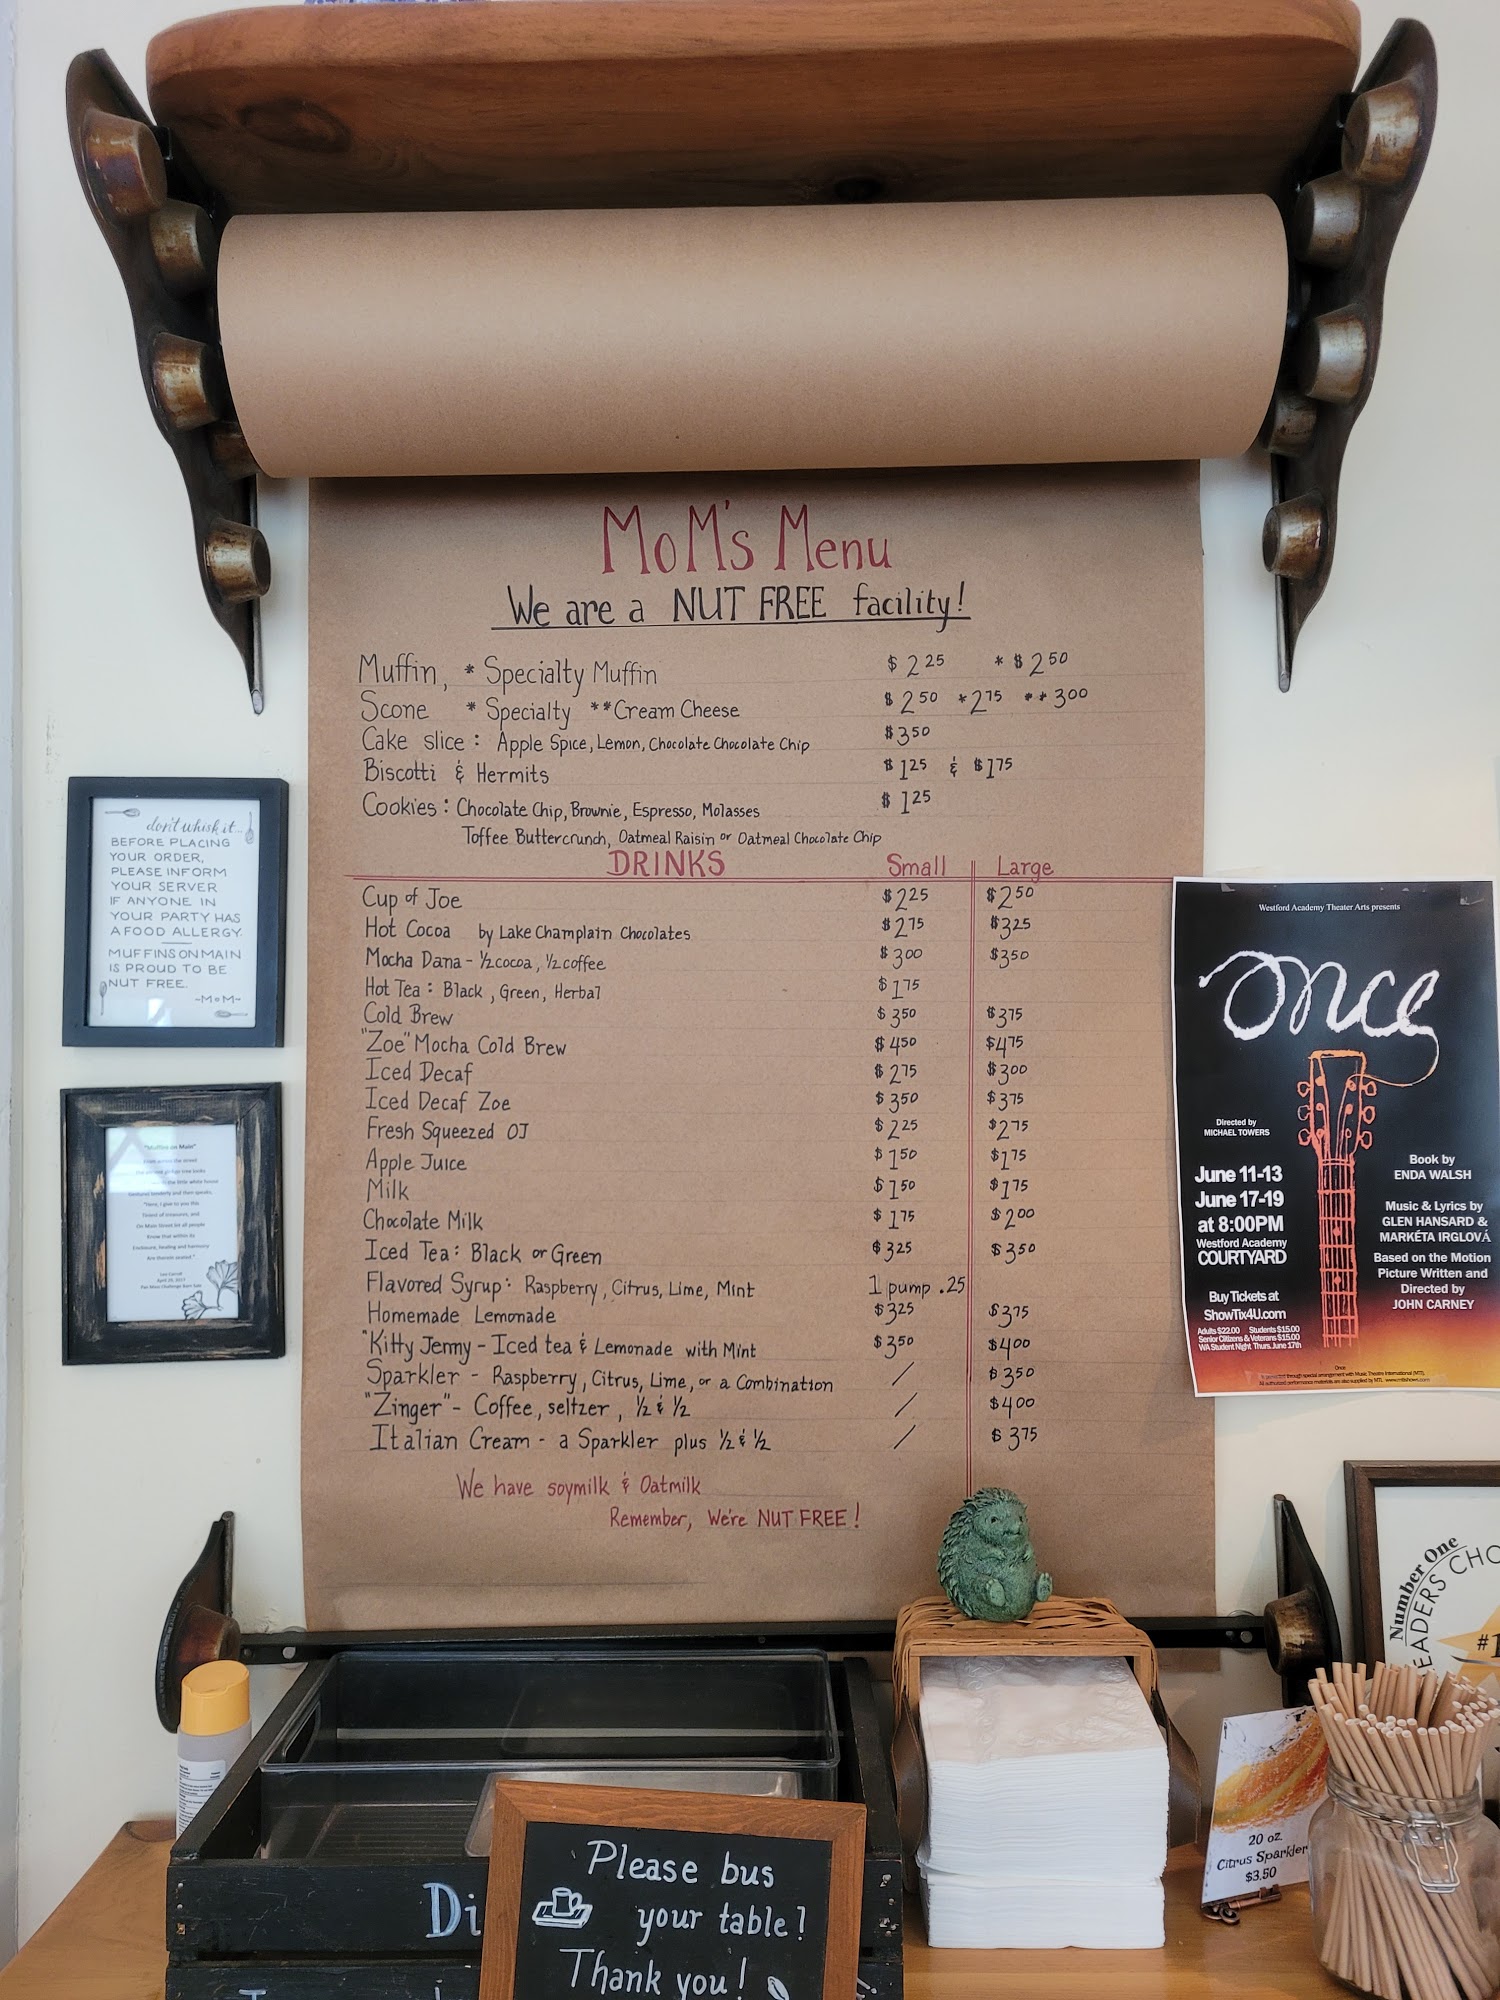 MoM's Menu
We are a NUT FREE facility!
Muffin, * Specialty Muffin $2.25 * $2.50
Scone * Specialty **Cream Cheese $2.50 *2.75 **3.00
Cake slice: Apple Spice, Lemon, Chocolate Chocolate Chip $3.50
Biscotti & Hermits $1.25 & $1.75
Cookies: Chocolate Chip, Brownie, Espresso, Molasses $1.25
Toffee Buttercrunch, Oatmeal Raisin or Oatmeal Chocolate Chip
DRINKS Small Large
Cup of Joe $2.25 $2.50
Hot Cocoa by Lake Champlain Chocolates $2.75 $3.25
Mocha Dana - 1/2 cocoa, 1/2 coffee $3.00 $3.50
Hot Tea: Black, Green, Herbal $1.75
Cold Brew $3.50 $3.75
"Zoe" Mocha Cold Brew $4.50 $4.75
Iced Decaf $2.75 $3.00
Iced Decaf Zoe $3.50 $3.75
Fresh Squeezed OJ $2.25 $2.75
Apple Juice $1.50 $1.75
Milk $1.50 $1.75
Chocolate Milk $1.75 $2.00
Iced Tea: Black or Green $3.25 $3.50
Flavored Syrup: Raspberry, Citrus, Lime, Mint 1 pump .25
Homemade Lemonade $3.25 $3.75
"Kitty Jenny - Iced tea & Lemonade with Mint $3.50 $4.00
Sparkler - Raspberry, Citrus, Lime, or a Combination / $3.50
"Zinger" - Coffee, seltzer, 1/2 & 1/2 / $4.00
Italian Cream - a Sparkler plus 1/2 & 1/2 / $3.75
We have soymilk & Oatmilk
Remember, We're NUT FREE!
don't whisk it...
BEFORE PLACING
YOUR ORDER,
PLEASE INFORM
YOUR SERVER
IF ANYONE IN
YOUR PARTY HAS
A FOOD ALLERGY.
MUFFINS ON MAIN
IS PROUD TO BE
NUT FREE.
~MoM~
"Muffins on Main"
the little white house
"Here, I give to you this
Tiniest of treasures, and
On Main Street let all people
Know that within its
Enclosure, healing and harmony
Are therein sealed."
April 28, 2013
Westford Academy Theater Arts presents
once
Directed by
MICHAEL TOWERS
June 11-13
June 17-19
at 8:00PM
Westford Academy
COURTYARD
Buy Tickets at
ShowTix4U.com
Adults $22.00 Students $15.00
Senior Citizens & Veterans $15.00
WA Student Night Thurs. June 17th
Book by
ENDA WALSH
Music & Lyrics by
GLEN HANSARD &
MARKÉTA IRGLOVÁ
Based on the Motion
Picture Written and
Directed by
JOHN CARNEY
Once
is presented through special arrangement with Music Theatre International (MTI).
All authorized performance materials are also supplied by MTI. www.mtishows.com
Number One
READERS CHO
#1
20 oz.
Citrus Sparkler
$3.50
Di
Please bus
your table!
Thank you!